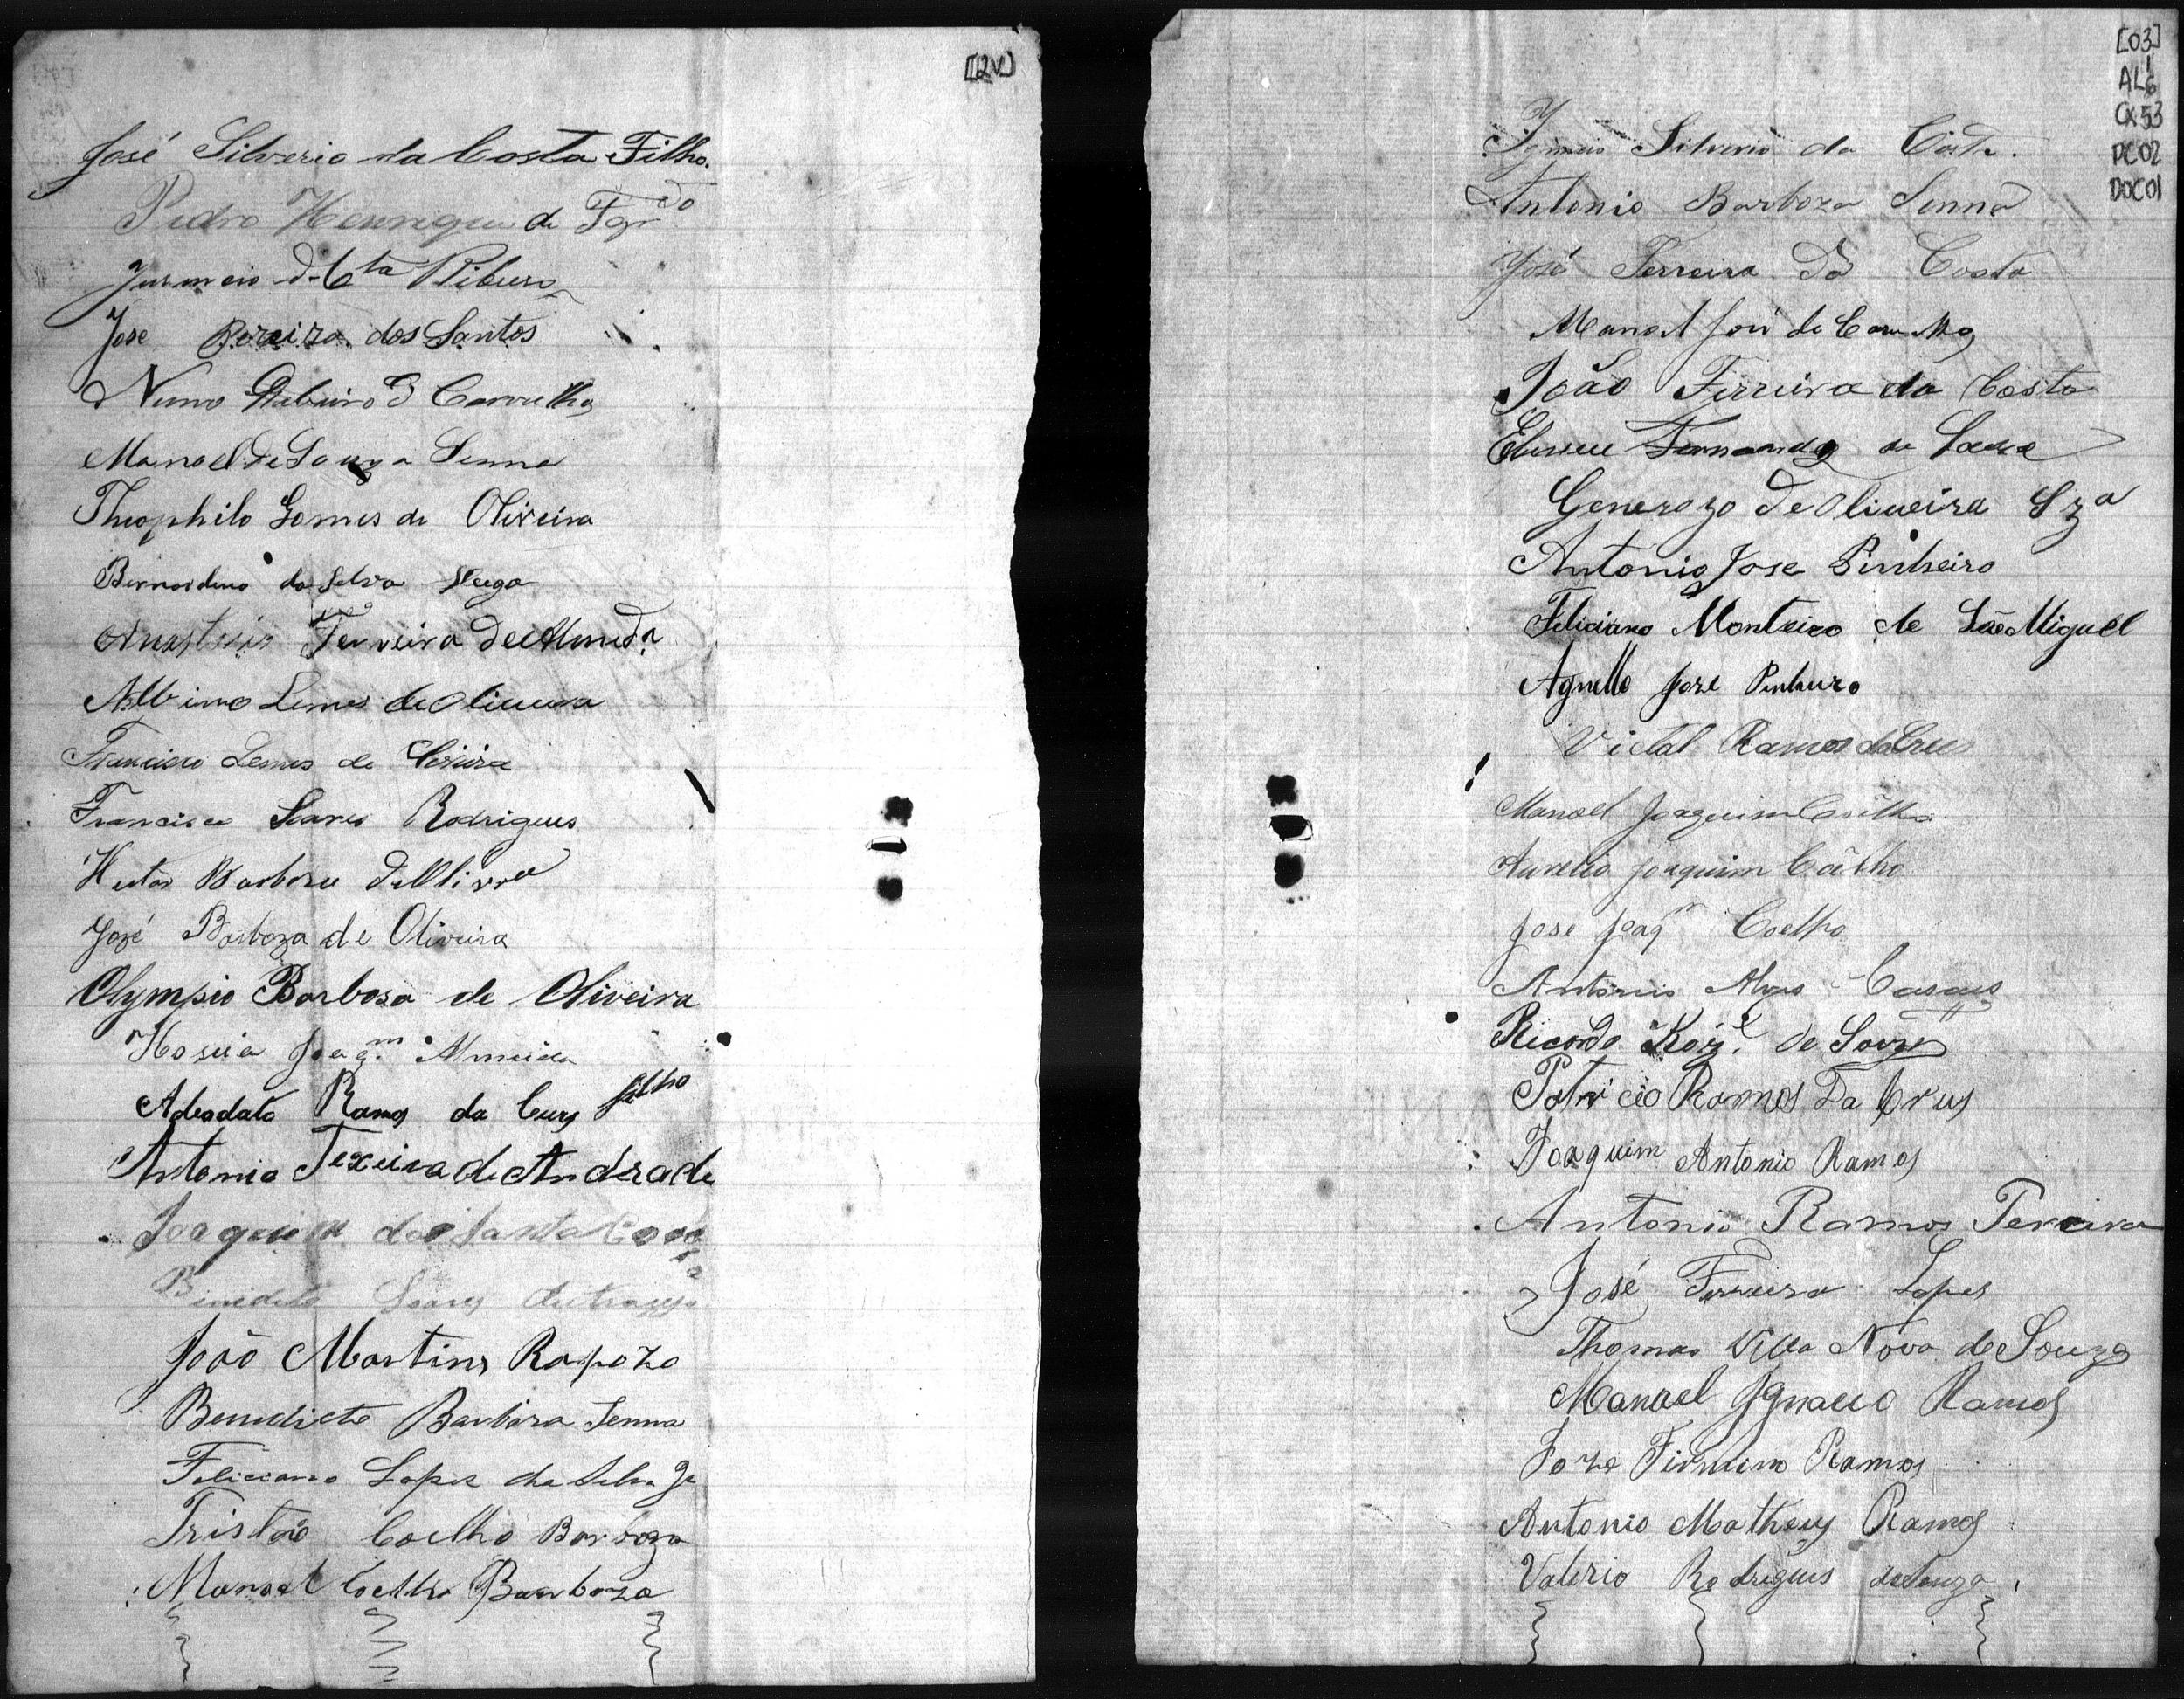 [12V]
José Silverio da Costa Filho.
Pedro Henrique de
da Cta Ribeiro
Jose Pereira dos Santos
Nuno Ribeiro Carvalho
Manoel de Souza Senna
Theophilo Gomes de Oliveira
Bernardino da Silva Veiga
Ferreira de Almeda
Albino Lemes de Oliveira
Francisco Lemes de
Francisco Soares Rodrigues
Barboza
José Barboza de Oliveira
Olympio Barbosa de Oliveira
Joaqm. Almeida
Adeodato Ramos da Cruz filho
Antonio Texeira de Andrade
Joaquim da Santa
Benedito Soares
João Martins Rapozo
Benedicto Barboza Senna
Feliciano Lopes da Silva
Tristão Coelho Barboza
Manoel Coelho Barboza
[03]
AL6
CX53
PC02
DOC01
Silverio da Costa.
Antonio Barboza Senna
José Ferreira da Costa
Manoel José de
João Ferreira da Costa
Fernandes de
Generozo de Oliveira Sza
Antonio Jose Pinheiro
Feliciano Monteiro de São Miguel
Agnello José Pinheiro
Victal Ramos da Cruz
Manoel Joaquim Coelho
Aurelio Joaquim Coelho
Jose Joaqm Coelho
Antonio Alves
Ricardo de Souza
Patricio Ramos Da Crus
Joaquim Antonio Ramos
Antonio Ramos Pereira
José Ferreira Lopes
Thomas Villa Nova de Souza
Manoel Ignacio Ramos
Joze Firmino Ramos
Antonio Matheus Ramos
Valerio Rodrigues de Souza